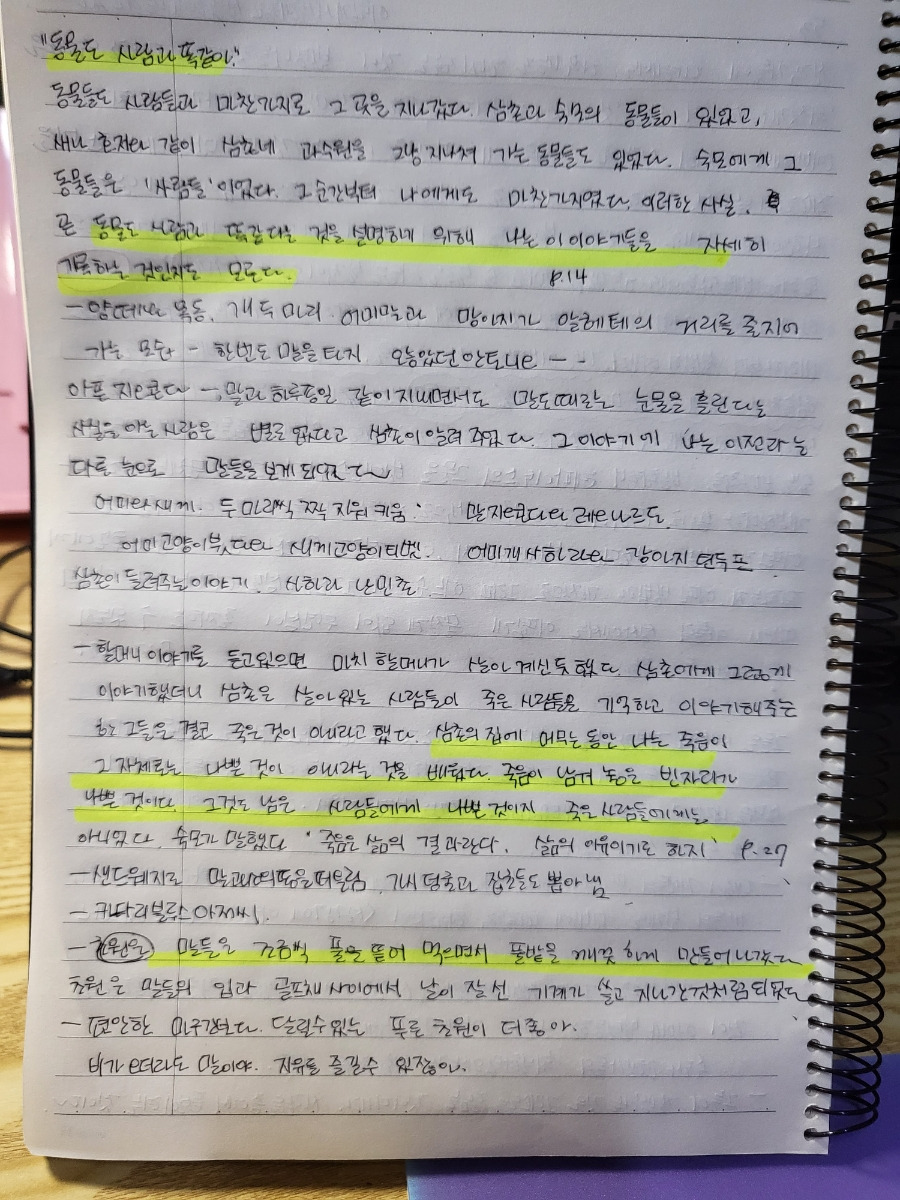 "동물도 사람과 똑같아."
동물들도 사람들과 마찬가지로 그 곳을 지나갔다. 삼촌과 숙모의 동물들이 있었고,
새나 같이 삼촌네 과수원을 그냥 지나쳐 가는 동물들도 있었다. 숙모에게 그
동물들은 '사람들'이었다. 그 순간부터 나에게도 마찬가지였다. 이러한 사실,
곧 동물도 사람과 똑같다는 것을 설명하기 위해 나는 이 이야기들을 자세히
기록하는 것인지도 모른다. P.14
- 양떼와 목동, 개 두 마리 어미말과 망아지가 알레테의 거리를 줄지어
가는 모습 - 한번도 말을 타지 않았던 안토니오 --
아픈 지오콘다 → 말과 하루종일 같이 지내면서도 말도 때로는 눈물을 흘린다는
사실을 아는 사람은 별로 없다고 삼촌이 알려 주었다. 그 이야기에 나는 이전과는
다른 눈으로 말들을 보게 되었다
어미와 새끼. 두 마리씩 짝 지워 키움: 말 지오콘다와 레오나르도
어미고양이 새끼고양이 어미개 사하라와 강아지
삼촌이 들려주는 이야기. 사하라 난민촌
- 할머니 이야기를 듣고있으면 마치 할머니가 살아 계신듯 했다. 삼촌에게 그렇게
이야기했더니 삼촌은 살아있는 사람들이 죽은 사람들을 기억하고 이야기해주는
한 그들은 결코 죽은 것이 아니라고 했다. 삼촌의 집에 머무는 동안 나는 죽음이
그 자체로는 나쁜 것이 아니라는 것을 배웠다. 죽음이 남겨 놓은 빈자리가
나쁜 것이다. 그것도 남은 사람들에게 나쁜 것이지 죽은 사람들에게는
아니었다. 숙모가 말했다 "죽음은 삶의 결과란다. 삶의 이유이기도 하지" P.27
- 샌드웨지로 떠올림, 가시덤불과 잡초들도 뽑아냄
- 아저씨,
- 초원을 말들은 조금씩 풀을 뜯어 먹으면서 풀밭을 깨끗하게 만들어 나갔다
초원은 말들의 입과 골프채 사이에서 날이 잘 선 기계가 쓸고 지나간것처럼 되었다
- 편안한 마구간보다. 달릴수있는 푸른 초원이 더 좋아.
비가 오더라도 말이야. 자유를 즐길수 있잖아.